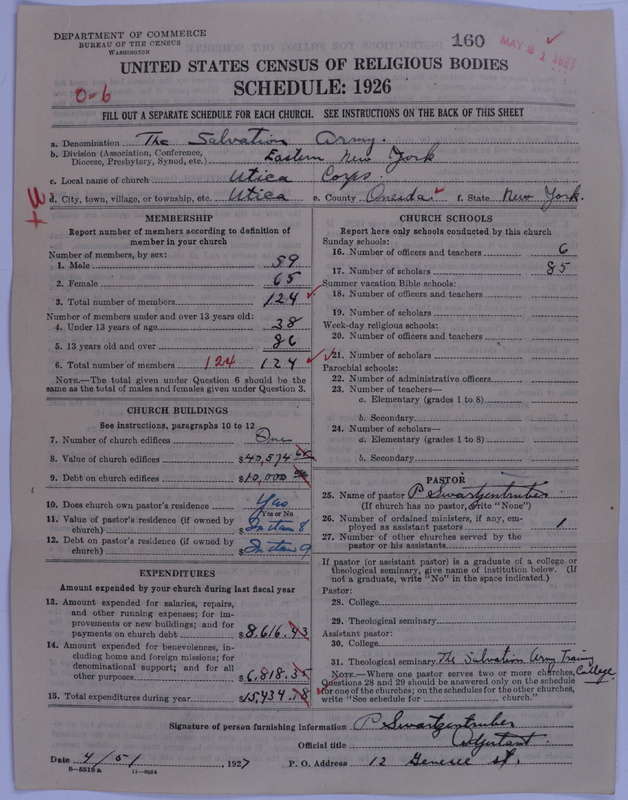 DEPARTMENT OF COMMERCE
BUREAU OF THE CENSUS
WASHINGTON
160
MAY 21 1927
UNITED STATES CENSUS OF RELIGIOUS BODIES
SCHEDULE: 1926
0-6
FILL OUT A SEPARATE SCHEDULE FOR EACH CHURCH. SEE INSTRUCTIONS ON THE BACK OF THIS SHEET
a. Denomination The Salvation Army.
b. Division (Association, Conference, Diocese, Presbytery, Synod, etc.) Eastern New York
c. Local name of church Utica Corps.
d. City, town, village, or township, etc. Utica e. County Oneida f. State New York.
MEMBERSHIP
Report number of members according to definition of
member in your church
Number of members, by sex:
1. Male 59
2. Female 65
3. Total number of members 124
Number of members under and over 13 years old:
4. Under 13 years of age 38
5. 13 years old and over 86
6. Total number of members 124 124
NOTE.—The total given under Question 6 should be the
same as the total of males and females given under Question 3.
CHURCH BUILDINGS
See instructions, paragraphs 10 to 12
7. Number of church edifices One
8. Value of church edifices $40,574
9. Debt on church edifices $10,000
10. Does church own pastor's residence Yes
Yes or No
11. Value of pastor's residence (if owned by
church) $ In item 8
12. Debt on pastor's residence (if owned by
church) $ In item 9
EXPENDITURES
Amount expended by your church during last fiscal year
13. Amount expended for salaries, repairs,
and other running expenses; for im-
provements or new buildings; and for
payments on church debt $8,616.43
14. Amount expended for benevolences, in-
cluding home and foreign missions; for
denominational support; and for all
other purposes $6,818.35
15. Total expenditures during year $15,434.78
CHURCH SCHOOLS
Report here only schools conducted by this church
Sunday schools:
16. Number of officers and teachers 6
17. Number of scholars 85
Summer vacation Bible schools:
18. Number of officers and teachers
19. Number of scholars
Week-day religious schools:
20. Number of officers and teachers
21. Number of scholars
Parochial schools:
22. Number of administrative officers
23. Number of teachers—
a. Elementary (grades 1 to 8)
b. Secondary
24. Number of scholars—
a. Elementary (grades 1 to 8)
b. Secondary
PASTOR
25. Name of pastor P Swartzentruber
(If church has no pastor, write "None")
26. Number of ordained ministers, if any, em-
ployed as assistant pastors 1
27. Number of other churches served by the
pastor or his assistants
If pastor (or assistant pastor) is a graduate of a college or
theological seminary, give name of institution below. (If
not a graduate, write "No" in the space indicated.)
Pastor:
28. College
29. Theological seminary
Assistant pastor:
30. College
31. Theological seminary The Salvation Army Training
College
NOTE.—Where one pastor serves two or more churches,
Questions 28 and 29 should be answered only on the schedule
for one of the churches; on the schedules for the other churches,
write "See schedule for church."
Signature of person furnishing information P Swartzentruber
Official title Adjutant.
Date 4/5/ , 1927 P. O. Address 12 Genesee st.
8-5518a 11-9654